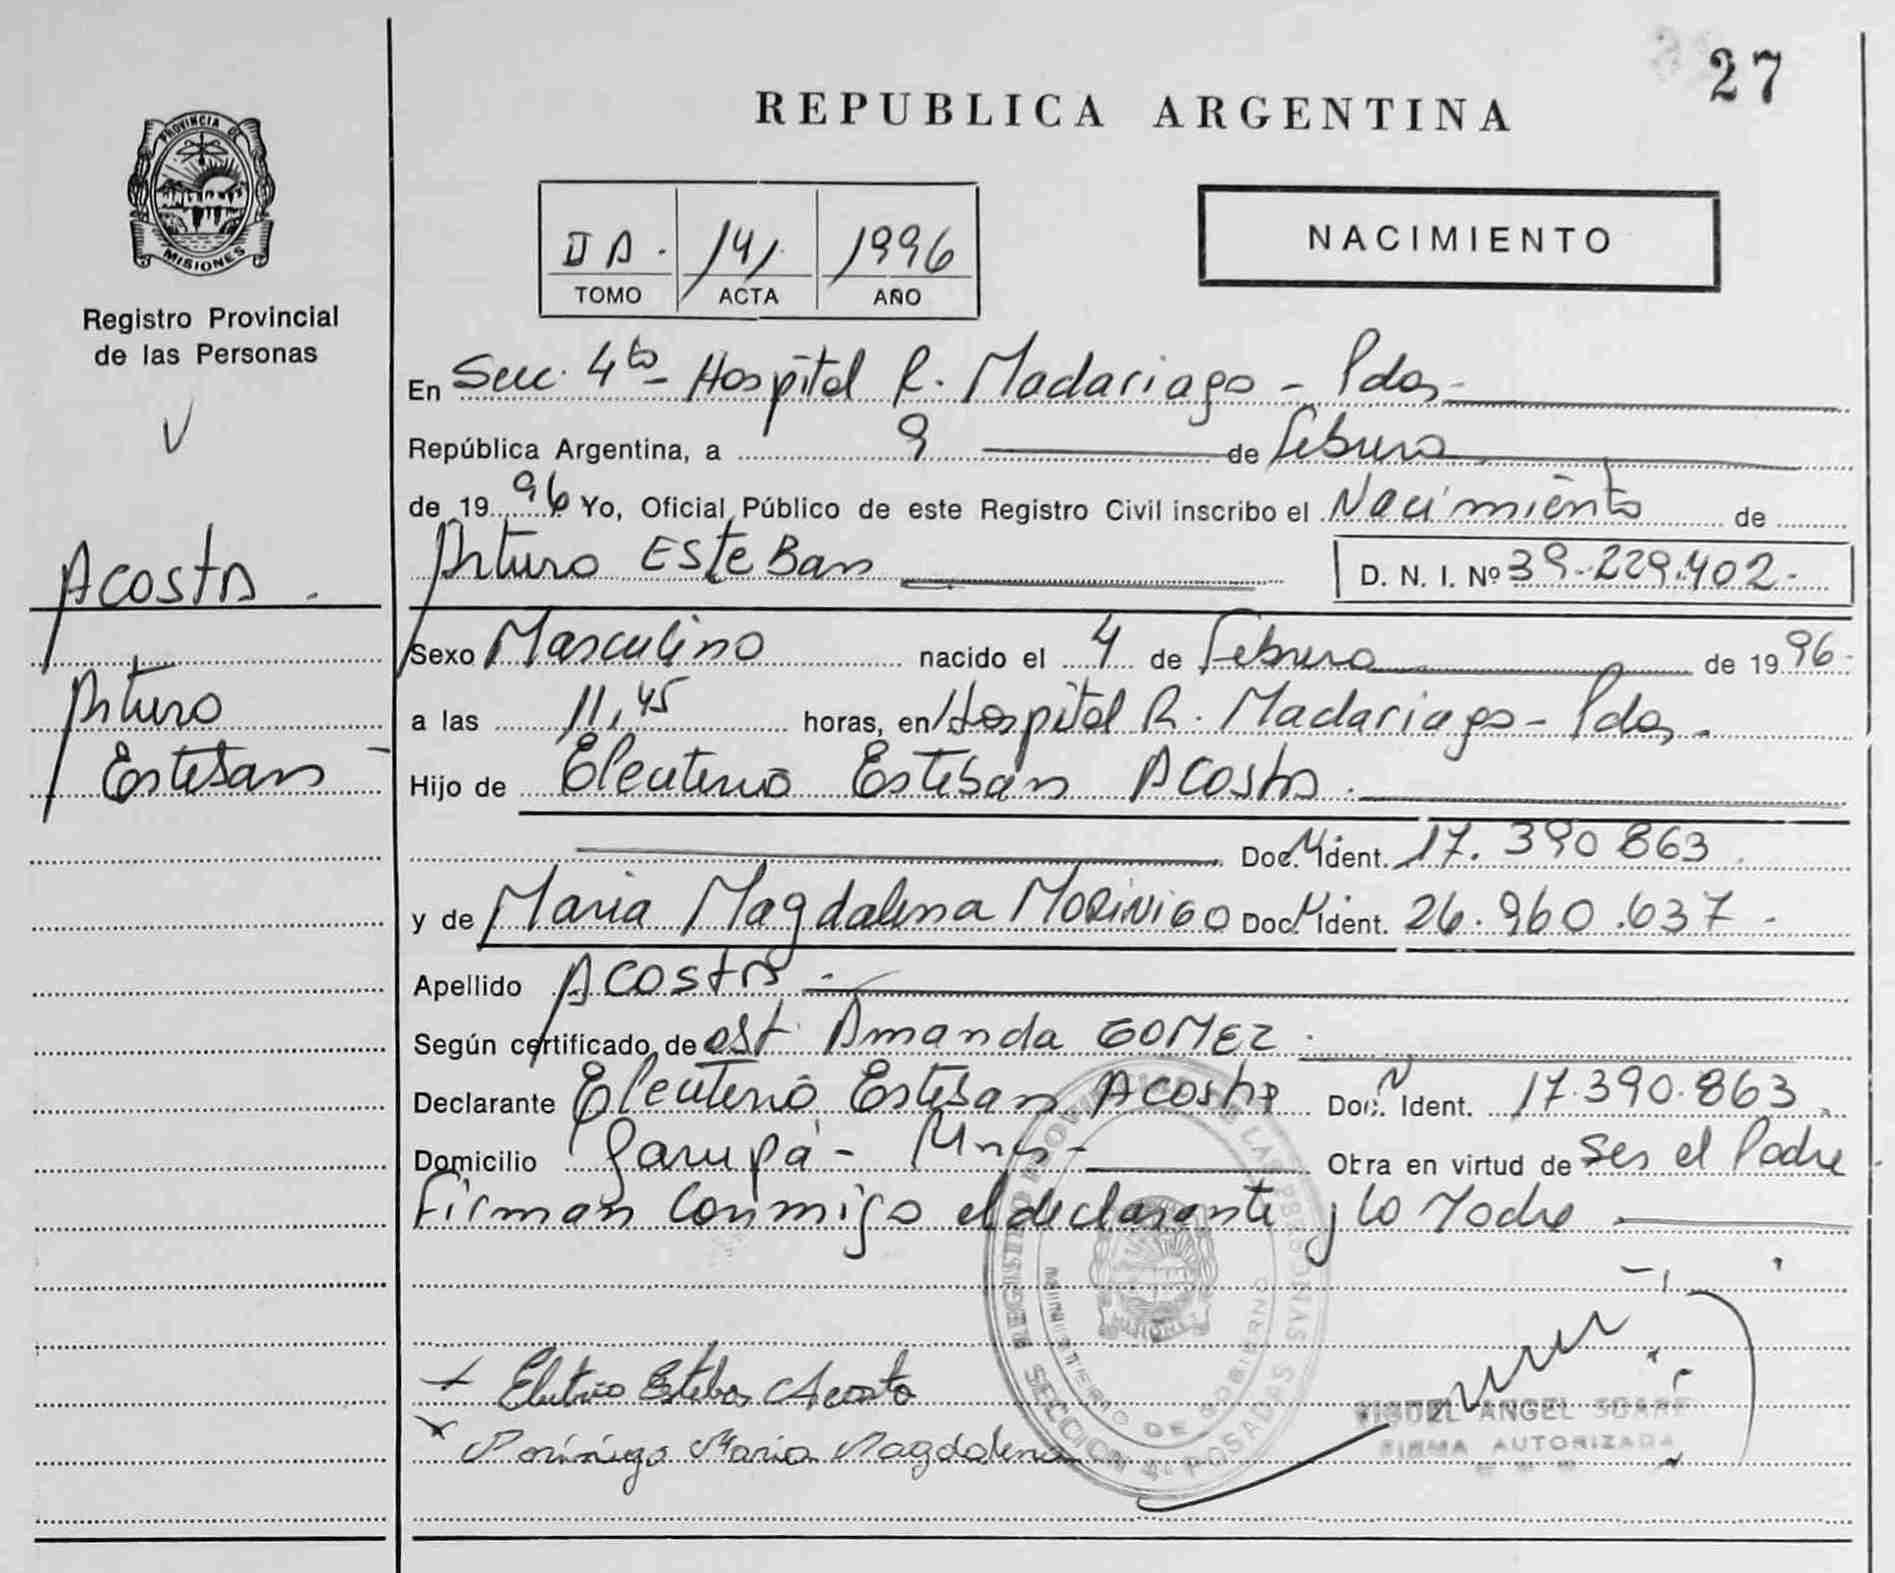 27
REPUBLICA ARGENTINA
PROVINCIA DE
MISIONES
Registro Provincial
de las Personas
TOMO
141 ACTA
1996 AÑO
NACIMIENTO
En Secc. 4ta - Hospital R. Madariaga - Pdas -
República Argentina, a 9 de febrero
de 1996 Yo, Oficial Público de este Registro Civil inscribo el Nacimiento de
Arturo Esteban D. N. I. Nº 39.229.402.-
Acosta.
Arturo
Esteban -
Sexo Masculino nacido el 4 de Febrero de 1996.
a las 11,45 horas, en Hospital R. Madariaga - Pdas.
Hijo de Eleuterio Esteban Acosta.
Doc. Ident. 17.390 863
y de Maria Magdalena MORINIGO Doc. Ident. 26.960.637.
Apellido Acosta -
Según certificado de obst. Amanda GOMEZ.
Declarante Eleuterio Esteban Acosta Doc. Ident. 17.390.863.
Domicilio Garupá - Mnes - Obra en virtud de ser el Padre.
Firman conmigo el declarante y la Madre.
REGISTRO PROVINCIAL DE LAS PERSONAS
MINISTERIO DE GOBIERNO
MISIONES
SECCION 4a POSADAS
Eleuterio Esteban Acosta
Moriñigo Maria Magdalena
MIGUEL ANGEL
FIRMA AUTORIZADA